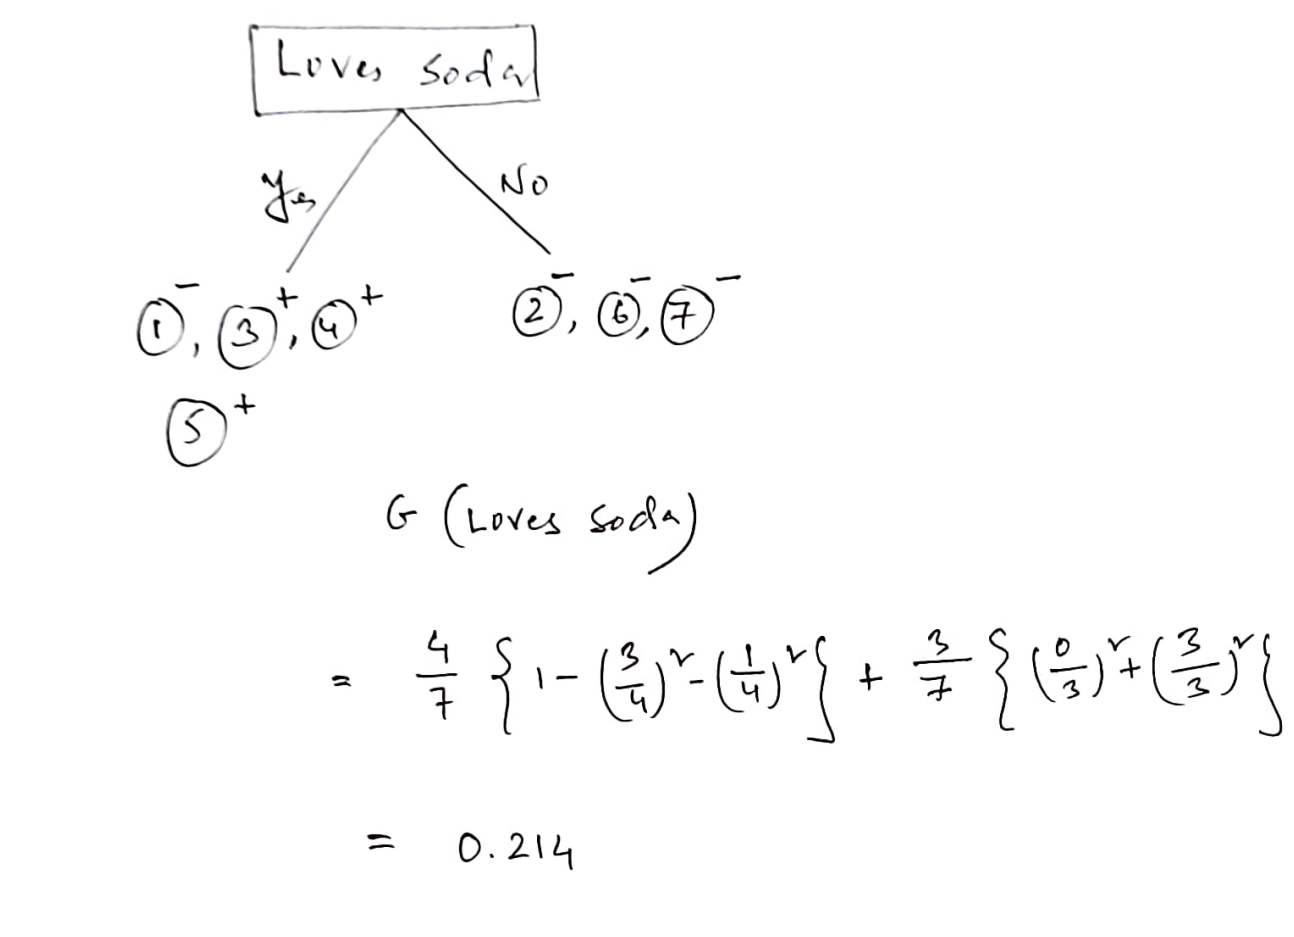 Loves Soda
Yes
No
①⁻, ③⁺, ④⁺
②⁻, ⑥⁻, ⑦⁻
⑤⁺
G (Loves Soda)
= 4/7 { 1 - (3/4)² - (1/4)² } + 3/7 { (0/3)² + (3/3)² }
= 0.214